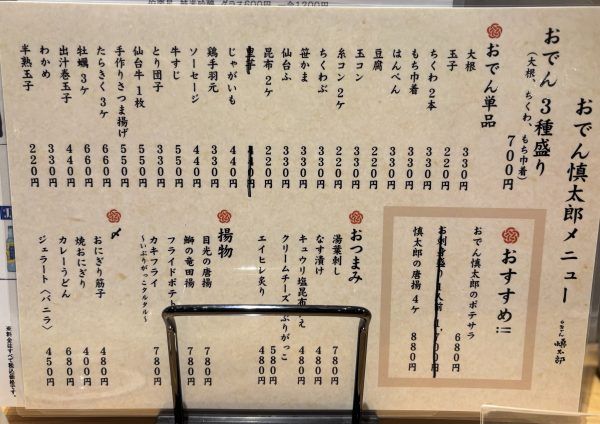 おでん慎太郎メニュー
おでん３種盛り
（大根、ちくわ、もち巾着）
700円
おでん単品
大根 330円
玉子 220円
ちくわ２本 220円
もち巾着 330円
はんぺん 330円
豆腐 220円
玉コン 330円
糸コン２ケ 220円
ちくわぶ 330円
笹かま 330円
仙台ふ 220円
昆布２ケ 220円
里芋
じゃがいも 440円
鶏手羽元 330円
ソーセージ 440円
牛すじ 550円
とり団子 330円
仙台牛１枚 550円
手作りさつま揚げ 550円
たらきく３ケ 660円
牡蠣３ケ 660円
出汁巻玉子 440円
わかめ 330円
半熟玉子 220円
おすすめ!!
おでん慎太郎のポテサラ 680円
お刺身盛り１人前 1,700円
慎太郎の唐揚４ケ 880円
おでん 慎太郎
おつまみ
湯葉刺し 780円
なす漬け 480円
キュウリ塩昆布え 480円
クリームチーズぶりがっこ 580円
エイヒレ炙り 480円
揚物
目光の唐揚 780円
鰤の竜田揚 780円
フライドポテト
カキフライ 780円
〜いぶりがっこタルタル〜
〆
おにぎり筋子 480円
焼おにぎり 400円
カレーうどん 680円
ジェラート（バニラ） 450円
※料金はすべて税込価格です。